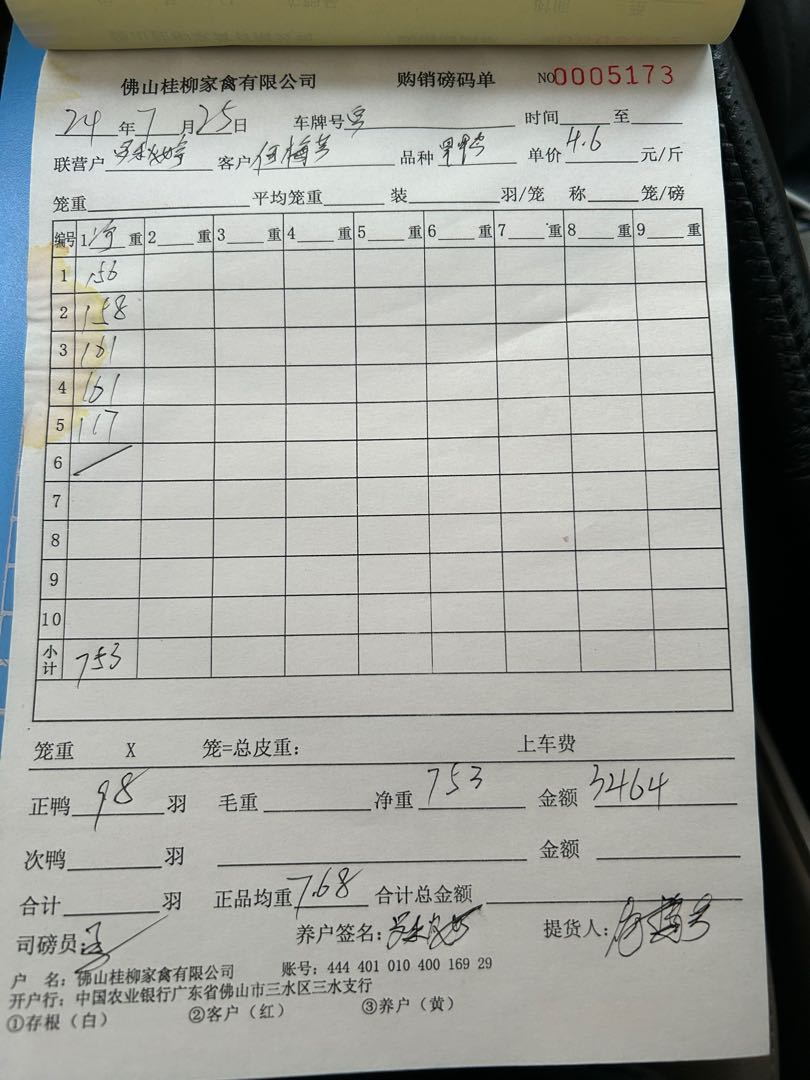 佛山桂柳家禽有限公司 购销磅码单 NO0005173
24年7月25日 车牌号 时间 至
联营户 客户何梅芳 品种 单价4.6元/斤
笼重 平均笼重 装 羽/笼 称 笼/磅
编号 1 重 2 重 3 重 4 重 5 重 6 重 7 重 8 重 9 重
1 156
2 158
3 161
4 161
5 117
6
7
8
9
10
小计 753
笼重 X 笼=总皮重: 上车费
正鸭98羽 毛重 净重753 金额3464
次鸭 羽 金额
合计 羽 正品均重7.68 合计总金额
司磅员: 养户签名: 提货人:
户 名: 佛山桂柳家禽有限公司 账号: 444 401 010 400 169 29
开户行: 中国农业银行广东省佛山市三水区三水支行
①存根(白) ②客户(红) ③养户(黄)